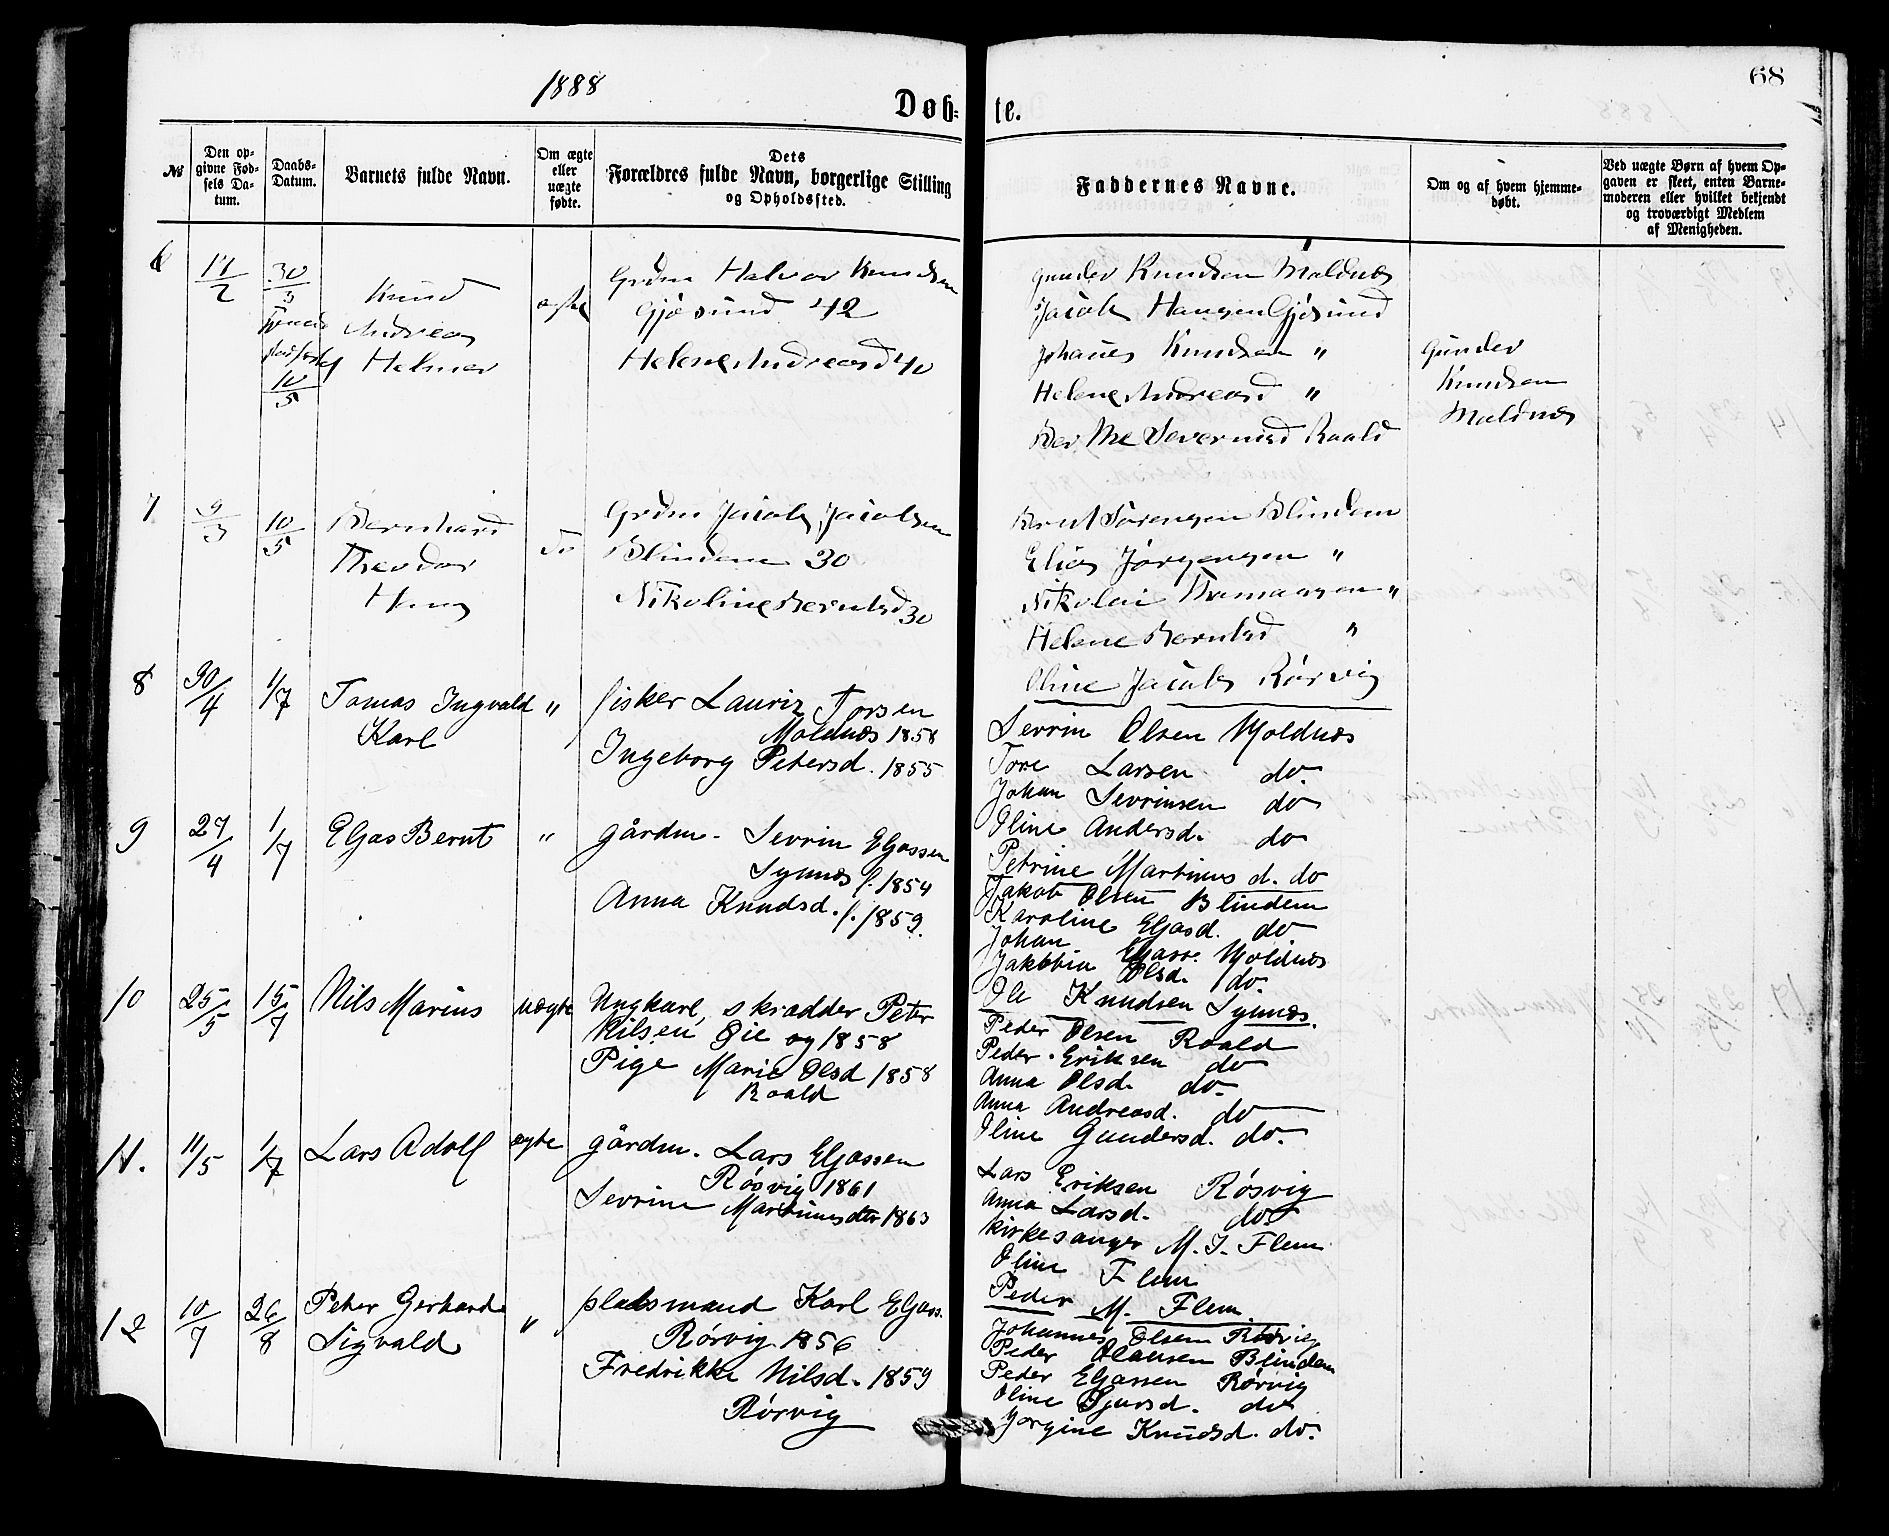 1888
68
Døb-
te.
№
Den op-
givne Fød-
sels Da-
tum.
Daabs-
Datum.
Barnets fulde Navn.
Om ægte
eller
uægte
fødte.
Dets
Forældres fulde Navn, borgerlige Stilling
og Opholdssted.
Faddernes Navne.
Om og af hvem hjemme-
døbt.
Ved uægte Børn af hvem Op-
gaven er skeet, enten Barne-
moderen eller hvilket bekjendt
og troværdigt Medlem
af Menigheden.
6
17/2
30/3
10/5
Knud
Andreas
Helmer
ægte
Grdm Halvor Knudsen
Gjøsund 42
Helene Andreasd 40
Gunder Knudsen Moldnæs
Jacob Hansen Gjøsund
Johannes Knudsen "
Helene Andreasd "
Berthe Severinsd Roald
Gunder
Knudsen
Moldnæs
7
9/3
10/5
Bernhard
Theodor
do
Grdm Jacob Jacobsen
Blindem 30
Nikoline Berntsd 30
Bernt Sørensen Blindem
Elias Jørgensen "
Nikolai Thomassen "
Helene Berntsd "
Oline Jacobs Rørvig
8
30/4
1/7
Tomas Ingvald
Karl
"
fisker Lauriz Torsen
Moldnæs 1858
Ingeborg Petersd. 1855
Sevrin Olsen Moldnæs
Tore Larsen do.
Johan Sevrinsen do
Oline Andersd. do
Petrine Martinus d. do
9
27/4
1/7
Eljas Bernt
"
gårdm. Sevrin Eljassen
Synnæs f. 1854
Anna Knudsd. f. 1859.
Jakob Olsen Blindem
Karoline Eljasd. do
Johan Eljass. Moldnæs
Jakobia Olsd. do.
Ole Knudsen Synnæs.
10
25/5
15/7
Nils Marius
uægte
Ungkarl, skrædder Peter
Nilsen Øie og 1858
Pige Marie Olsd 1858
Roald
Peder Olsen Roald
Peder Eriksen do
Anna Olsd. do.
Anna Andreasd. do
Oline Gundersd. do.
11.
11/5
1/7
Lars Adolf
ægte
gårdm. Lars Eljassen
Røsvig 1861
Sevrine Martinusdtr 1863
Lars Eriksen Røsvig
Anna Larsd. do.
Kirkesanger M. J. Flem
Oline Flem
Peder M. Flem
12
10/7
26/8
Peter Gerhard
Sigvald
"
pladsmand Karl Eljass.
Rørvig 1856
Fredrikke Nilsd. 1859
Rørvig
Johannes Olsen Rørvig
Peder Olausen Blindem
Peder Eljassen Rørvig
Oline Sjursd. do
Jorgine Knudsd. do.